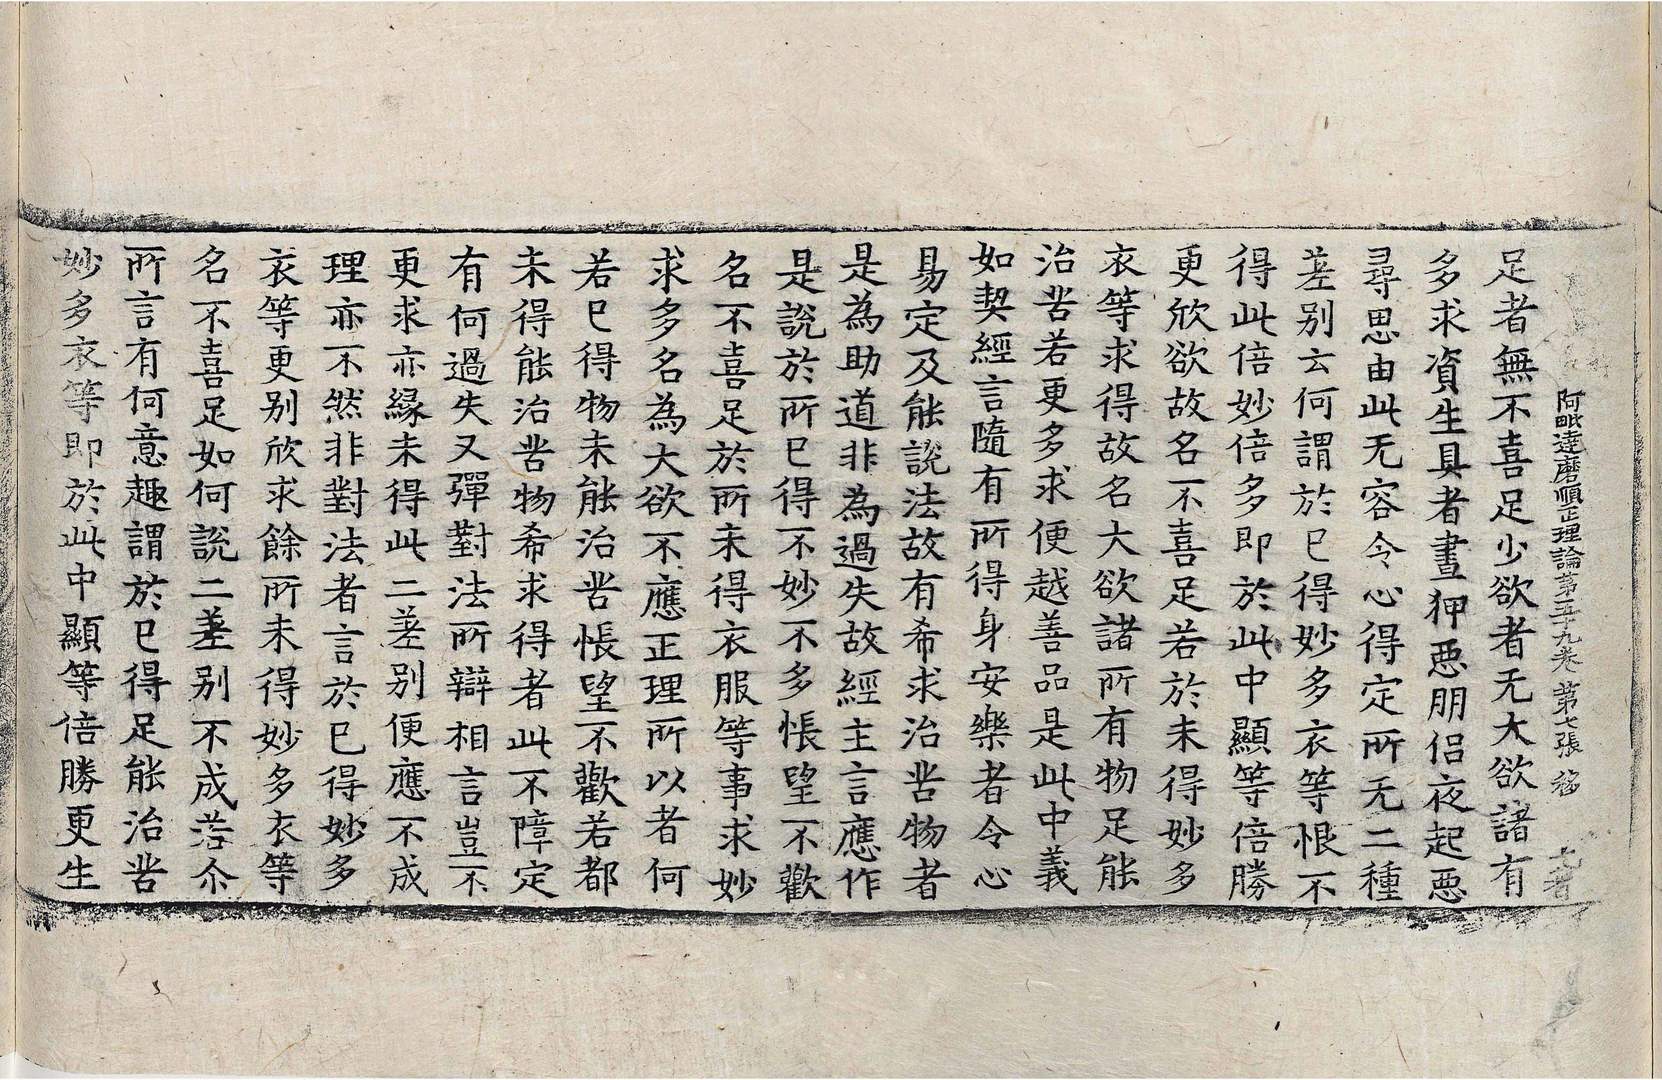 阿毗達磨順正理論第五十九卷 第七張 移
足者無不喜足少欲者无大欲諸有
多求資生具者晝狎惡朋侣夜起惡
尋思由此无容令心得定所无二種
差别云何謂於已得妙多衣等恨不
得此倍妙倍多即於此中顯等倍勝
更欣欲故名不喜足若於未得妙多
衣等求得故名大欲諸所有物足能
治苦若更多求便越善品是此中義
如契經言隨有所得身安樂者令心
易定及能說法故有希求治苦物者
是為助道非為過失故經主言應作
是說於所已得不妙不多悵望不歡
名不喜足於所未得衣服等事求妙
求多名為大欲不應正理所以者何
若已得物未能治苦悵望不歡若都
未得能治苦物希求得者此不障定
有何過失又彈對法所辯相言豈不
更求亦緣未得此二差别便應不成
理亦不然非對法者言於已得妙多
衣等更别欣求餘所未得妙多衣等
名不喜足如何說二差别不成若尒
所言有何意趣謂於已得足能治苦
妙多衣等即於此中顯等倍勝更生